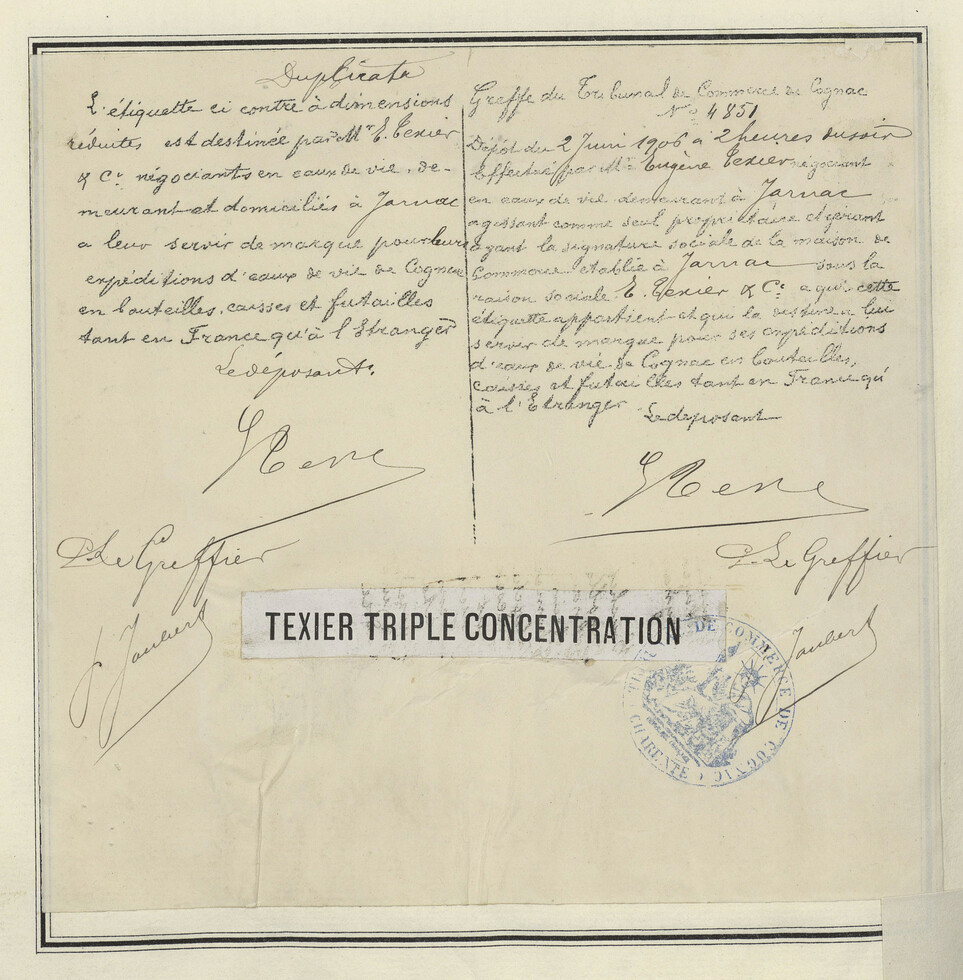 Duplicata
L'étiquette ci contre à dimensions
réduites est destinée par Mr E. Texier
& Cie négociants en eaux de vie, de-
meurant et domiciliés à Jarnac
a leur servir de marque pour leurs
expéditions d'eaux de vie de Cognac
en bouteilles, caisses et futailles
tant en France qu'à l'Etranger
Le déposant.
Pr Le Greffier
Joubert
Greffe du Tribunal de Commerce de Cognac
No 4851
Dépôt du 2 Juin 1906 à 2 heures du soir
Effectué par Mr Eugène Texier négociant
en eaux de vie demeurant à Jarnac
agissant comme seul propriétaire et gérant
ayant la signature sociale de la maison de
Commerce établie à Jarnac sous la
raison sociale E. Texier & Cie a qui cette
étiquette appartient et qui la destine a lui
servir de marque pour ses expéditions
d'eaux de vie de Cognac en bouteilles,
caisses et futailles tant en France qu'
à l'Etranger
Le déposant
Pr Le Greffier
Joubert
TEXIER TRIPLE CONCENTRATION
DE COMMERCE DE COGNAC
CHARENTE